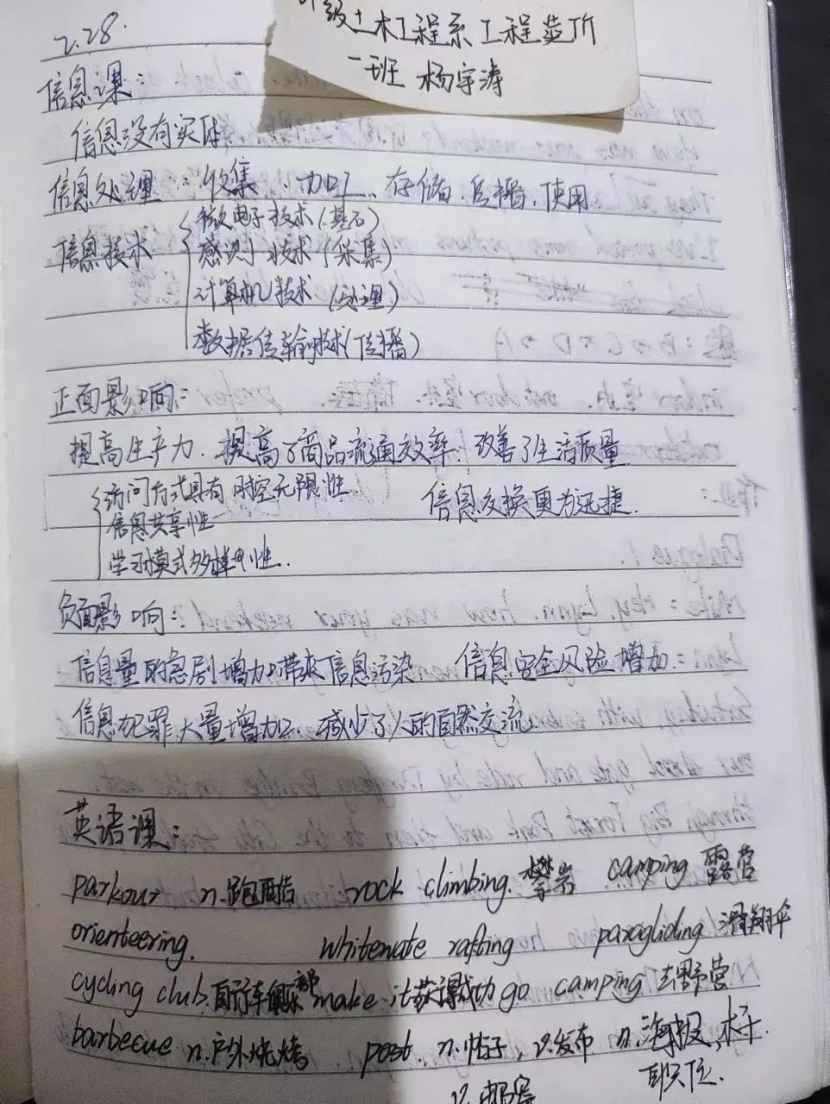 级土木工程系工程造价
一班 杨宇涛
2.28.
信息课：
信息没有实体
信息处理：收集、加工、存储、传播、使用
微电子技术(基石)
信息技术 感测技术(采集)
计算机技术(处理)
数据传输技术(传播)
正面影响：
提高生产力. 提高了商品流通效率. 改善了生活质量
访问方式具有时空无限性 信息交换更为迅捷.
信息共享性
学习模式多样性.
负面影响：
信息量的急剧增加带来信息污染 信息安全风险增加
信息犯罪大量增加. 减少了人的自然交流.
英语课：
parkour n.跑酷 rock climbing.攀岩 camping 露营
orienteering. whitewate rafting paragliding 滑翔伞
cycling club.自行车俱乐部 make it 获得成功 go camping 去野营
barbecue n.户外烧烤 post n.帖子, v.发布 n.海报,
v.邮寄 职位.